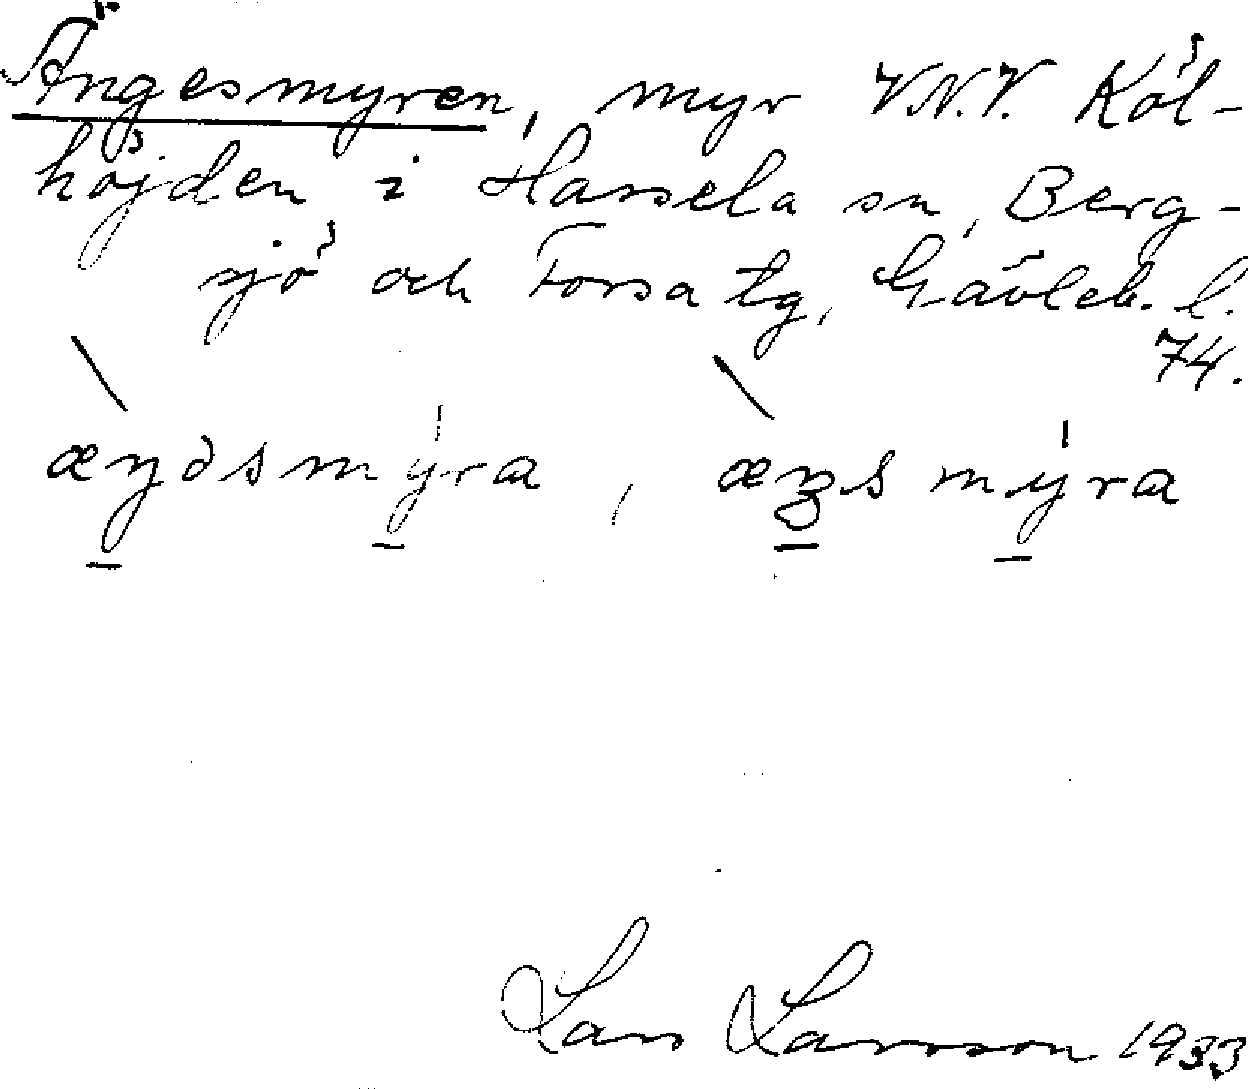 Ängesmyren, myr V.N.V. Köl-
höjden i Hassela sn, Berg-
sjö och Forsa tg, Gävleb. l.
74.
æŋəsmy̠ra, æŋ̠smy̠ra
Lars Larsson 1933